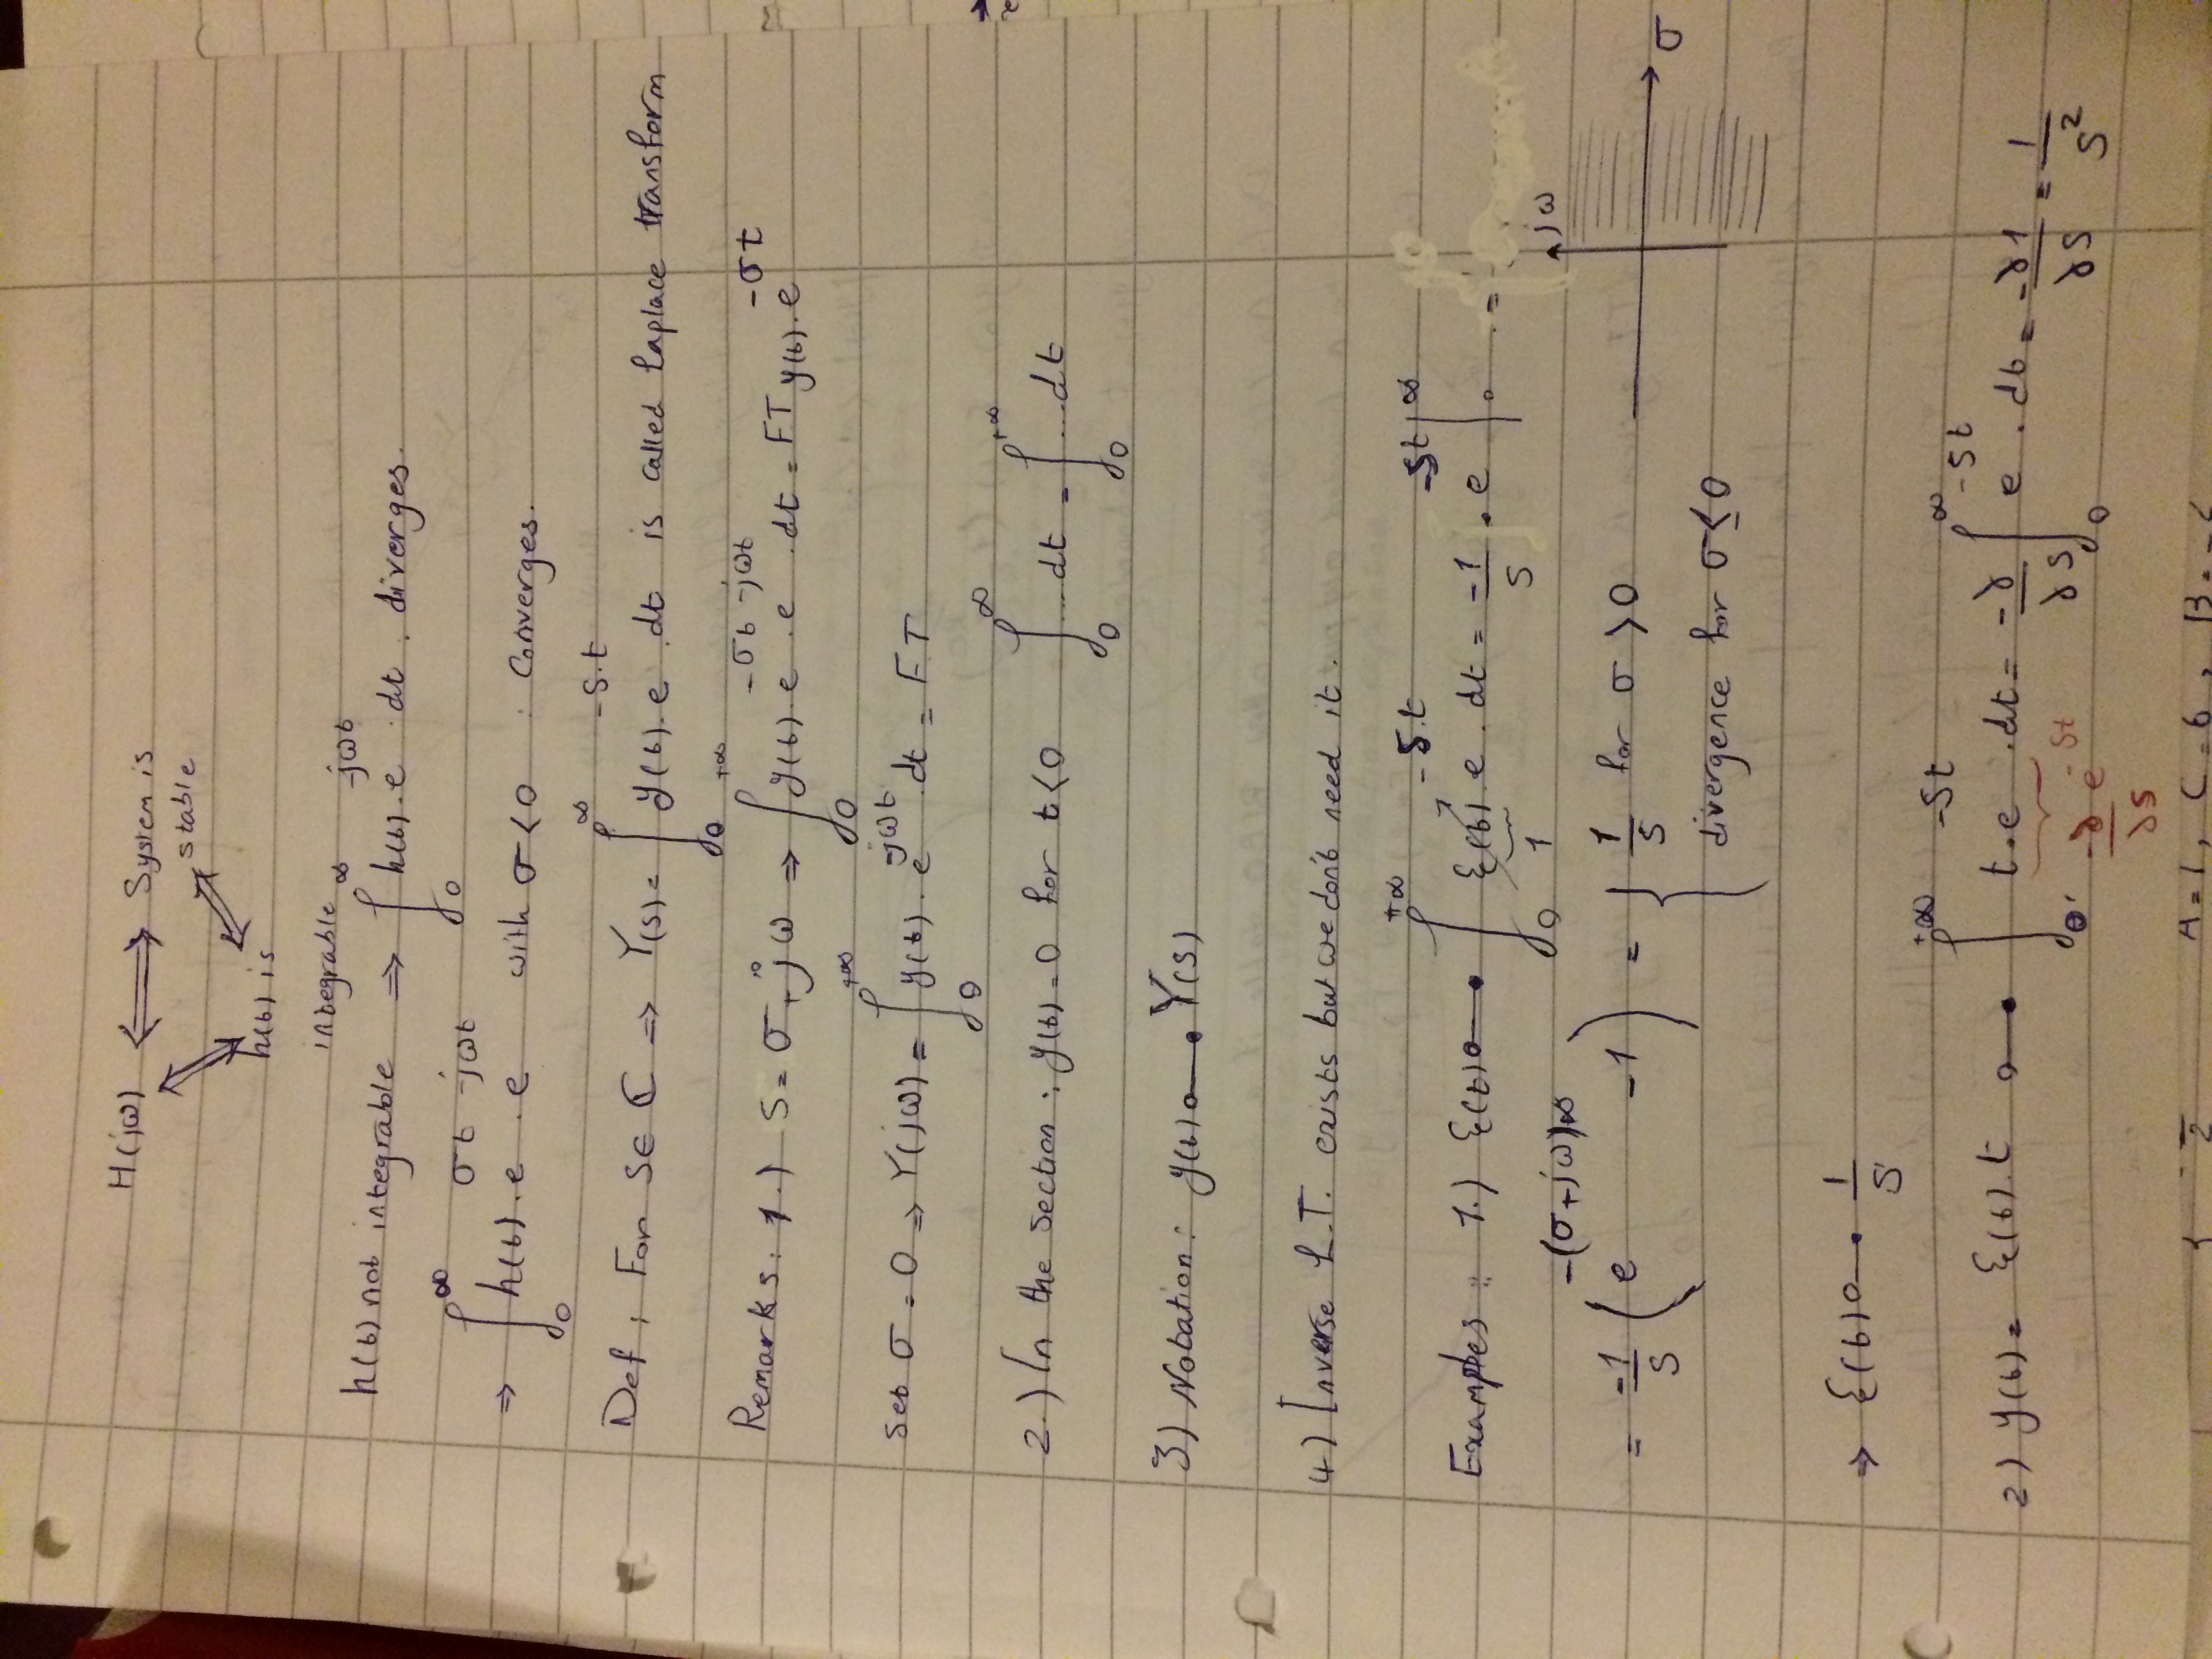 H(jω) ⟺ System is
stable
h(t) is
integrable
h(t) not integrable ⇒ ∫₀^∞ h(t).e^{-jωt} . dt . diverges.
⇒ ∫₀^∞ h(t).e^{σt} . e^{-jωt} with σ<0 : Converges.
Def: For S∈ℂ ⇒ Y(s)= ∫₀^∞ y(t).e^{-s.t} .dt is called Laplace transform
Remarks: 1.) S=σ+jω ⇒ ∫₀^{+∞} y(t).e^{-σt}.e^{-jωt} .dt = FT y(t).e^{-σt}
Set σ=0 ⇒ Y(jω)= ∫₀^{+∞} y(t).e^{-jωt}.dt = FT
2.) In the section: y(t)=0 for t<0 ∫₀^∞ ...dt = ∫₀^{+∞} ...dt
3) Notation: y(t) o—• Y(s)
4) Inverse L.T. exists but we don't need it.
Examples: 1.) ξ(t) o—• ∫₀^{+∞} ξ(t).e^{-s.t}.dt = -1/s . e^{-st} |₀^∞ . =
1
= -1/s ( e^{-(σ+jω)∞} -1 ) = { 1/s for σ>0
divergence for σ≤0
jω
σ
⇒ ξ(t) o—• 1/s
2) y(t)= ξ(t).t o—• ∫₀^{+∞} t.e^{-st}.dt = -∂/∂s ∫₀^∞ e^{-st}.dt = -∂1/∂s = 1/s²
-∂/∂s e^{-st}
2 A=1, C=6, B=